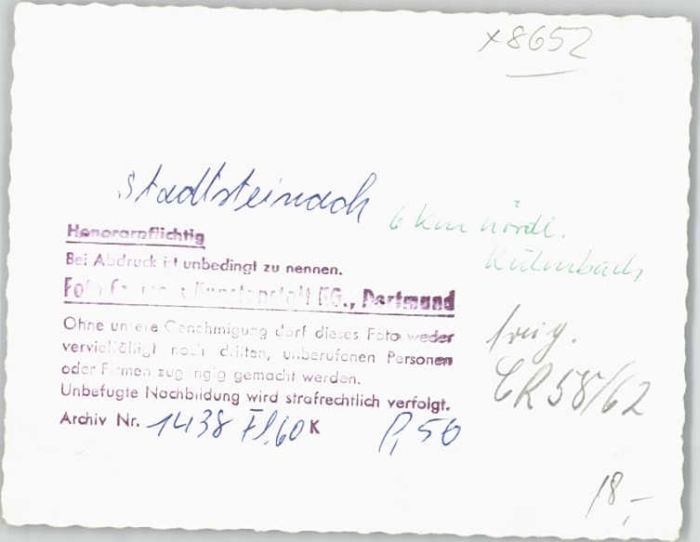 x8652
Stadtsteinach 6 km nördl.
Kulmbach
Honorarpflichtig
Bei Abdruck ist unbedingt zu nennen.
Kunstanstalt KG., Dortmund
Ohne unsere Genehmigung darf dieses Foto weder
vervielfältigt noch dritten, unberufenen Personen
oder Firmen zugängig gemacht werden.
Unbefugte Nachbildung wird strafrechtlich verfolgt.
Archiv Nr. 1438 Fl. 60 K P, 50
freig.
CR 58/62
18,-